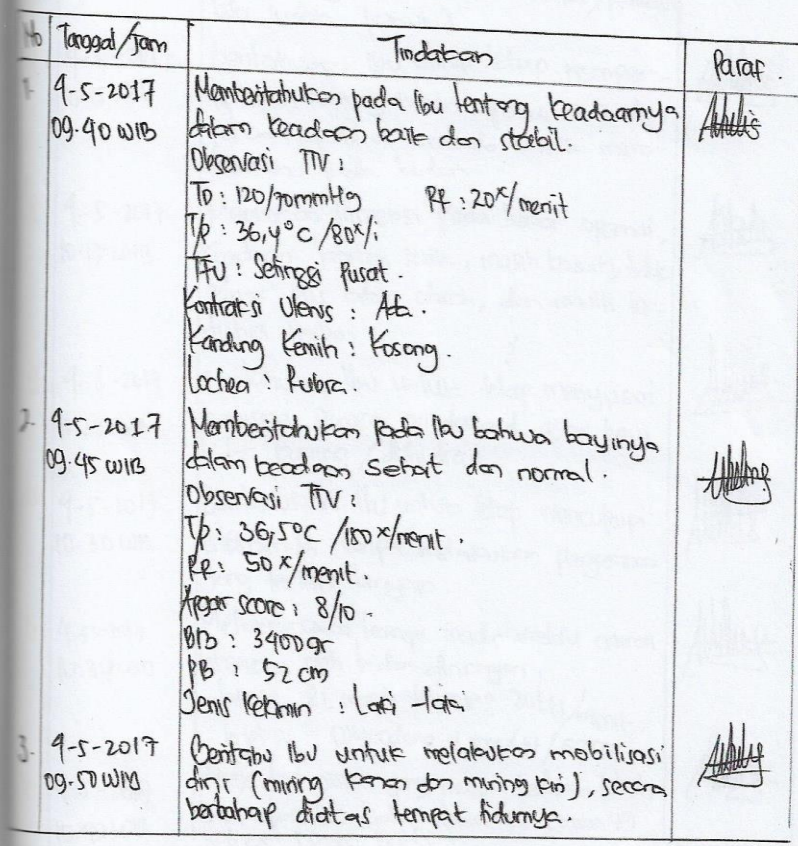 No Tanggal/Jam Tindakan Paraf.
1. 4-5-2017 Memberitahukan pada Ibu tentang keadaannya
09.40 WIB dalam keadaan baik dan stabil.
Observasi TTV :
TD : 120/70mmHg RR : 20x/menit
T/p : 36,4°C /80x/i
TFU : Setinggi Pusat.
Kontraksi Uterus : Ada.
Kandung Kemih : Kosong.
Lochea : Rubra.
2. 4-5-2017 Memberitahukan pada Ibu bahwa bayinya
09.45 WIB dalam keadaan Sehat dan normal.
Observasi TTV :
T/p : 36,5°C /150x/menit.
RR : 50x/menit.
Apgar score : 8/10.
BB : 3400gr
PB : 52 cm
Jenis Kelamin : Laki-laki
3. 4-5-2017 Beritahu Ibu untuk melakukan mobilisasi
09.50 WIB dini (miring kanan dan miring kiri), secara
bertahap diatas tempat tidurnya.